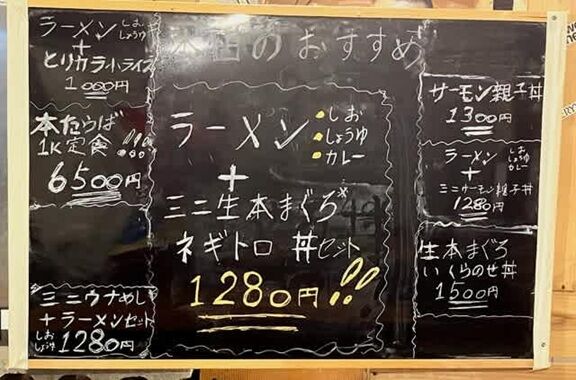 本店のおすすめ
ラーメン しお
しょうゆ
+
とりカラ小ライス
1000円
本たらば
1K定食
6500円
ミニウナめし
+ラーメンセット
しお
しょうゆ
1280円
ラーメン
しお
しょうゆ
カレー
+
ミニ生本まぐろ
ネギトロ丼セット
1280円
サーモン親子丼
1300円
ラーメン
しお
しょうゆ
カレー
+
ミニサーモン親子丼
1280円
生本まぐろ
いくらのせ丼
1500円